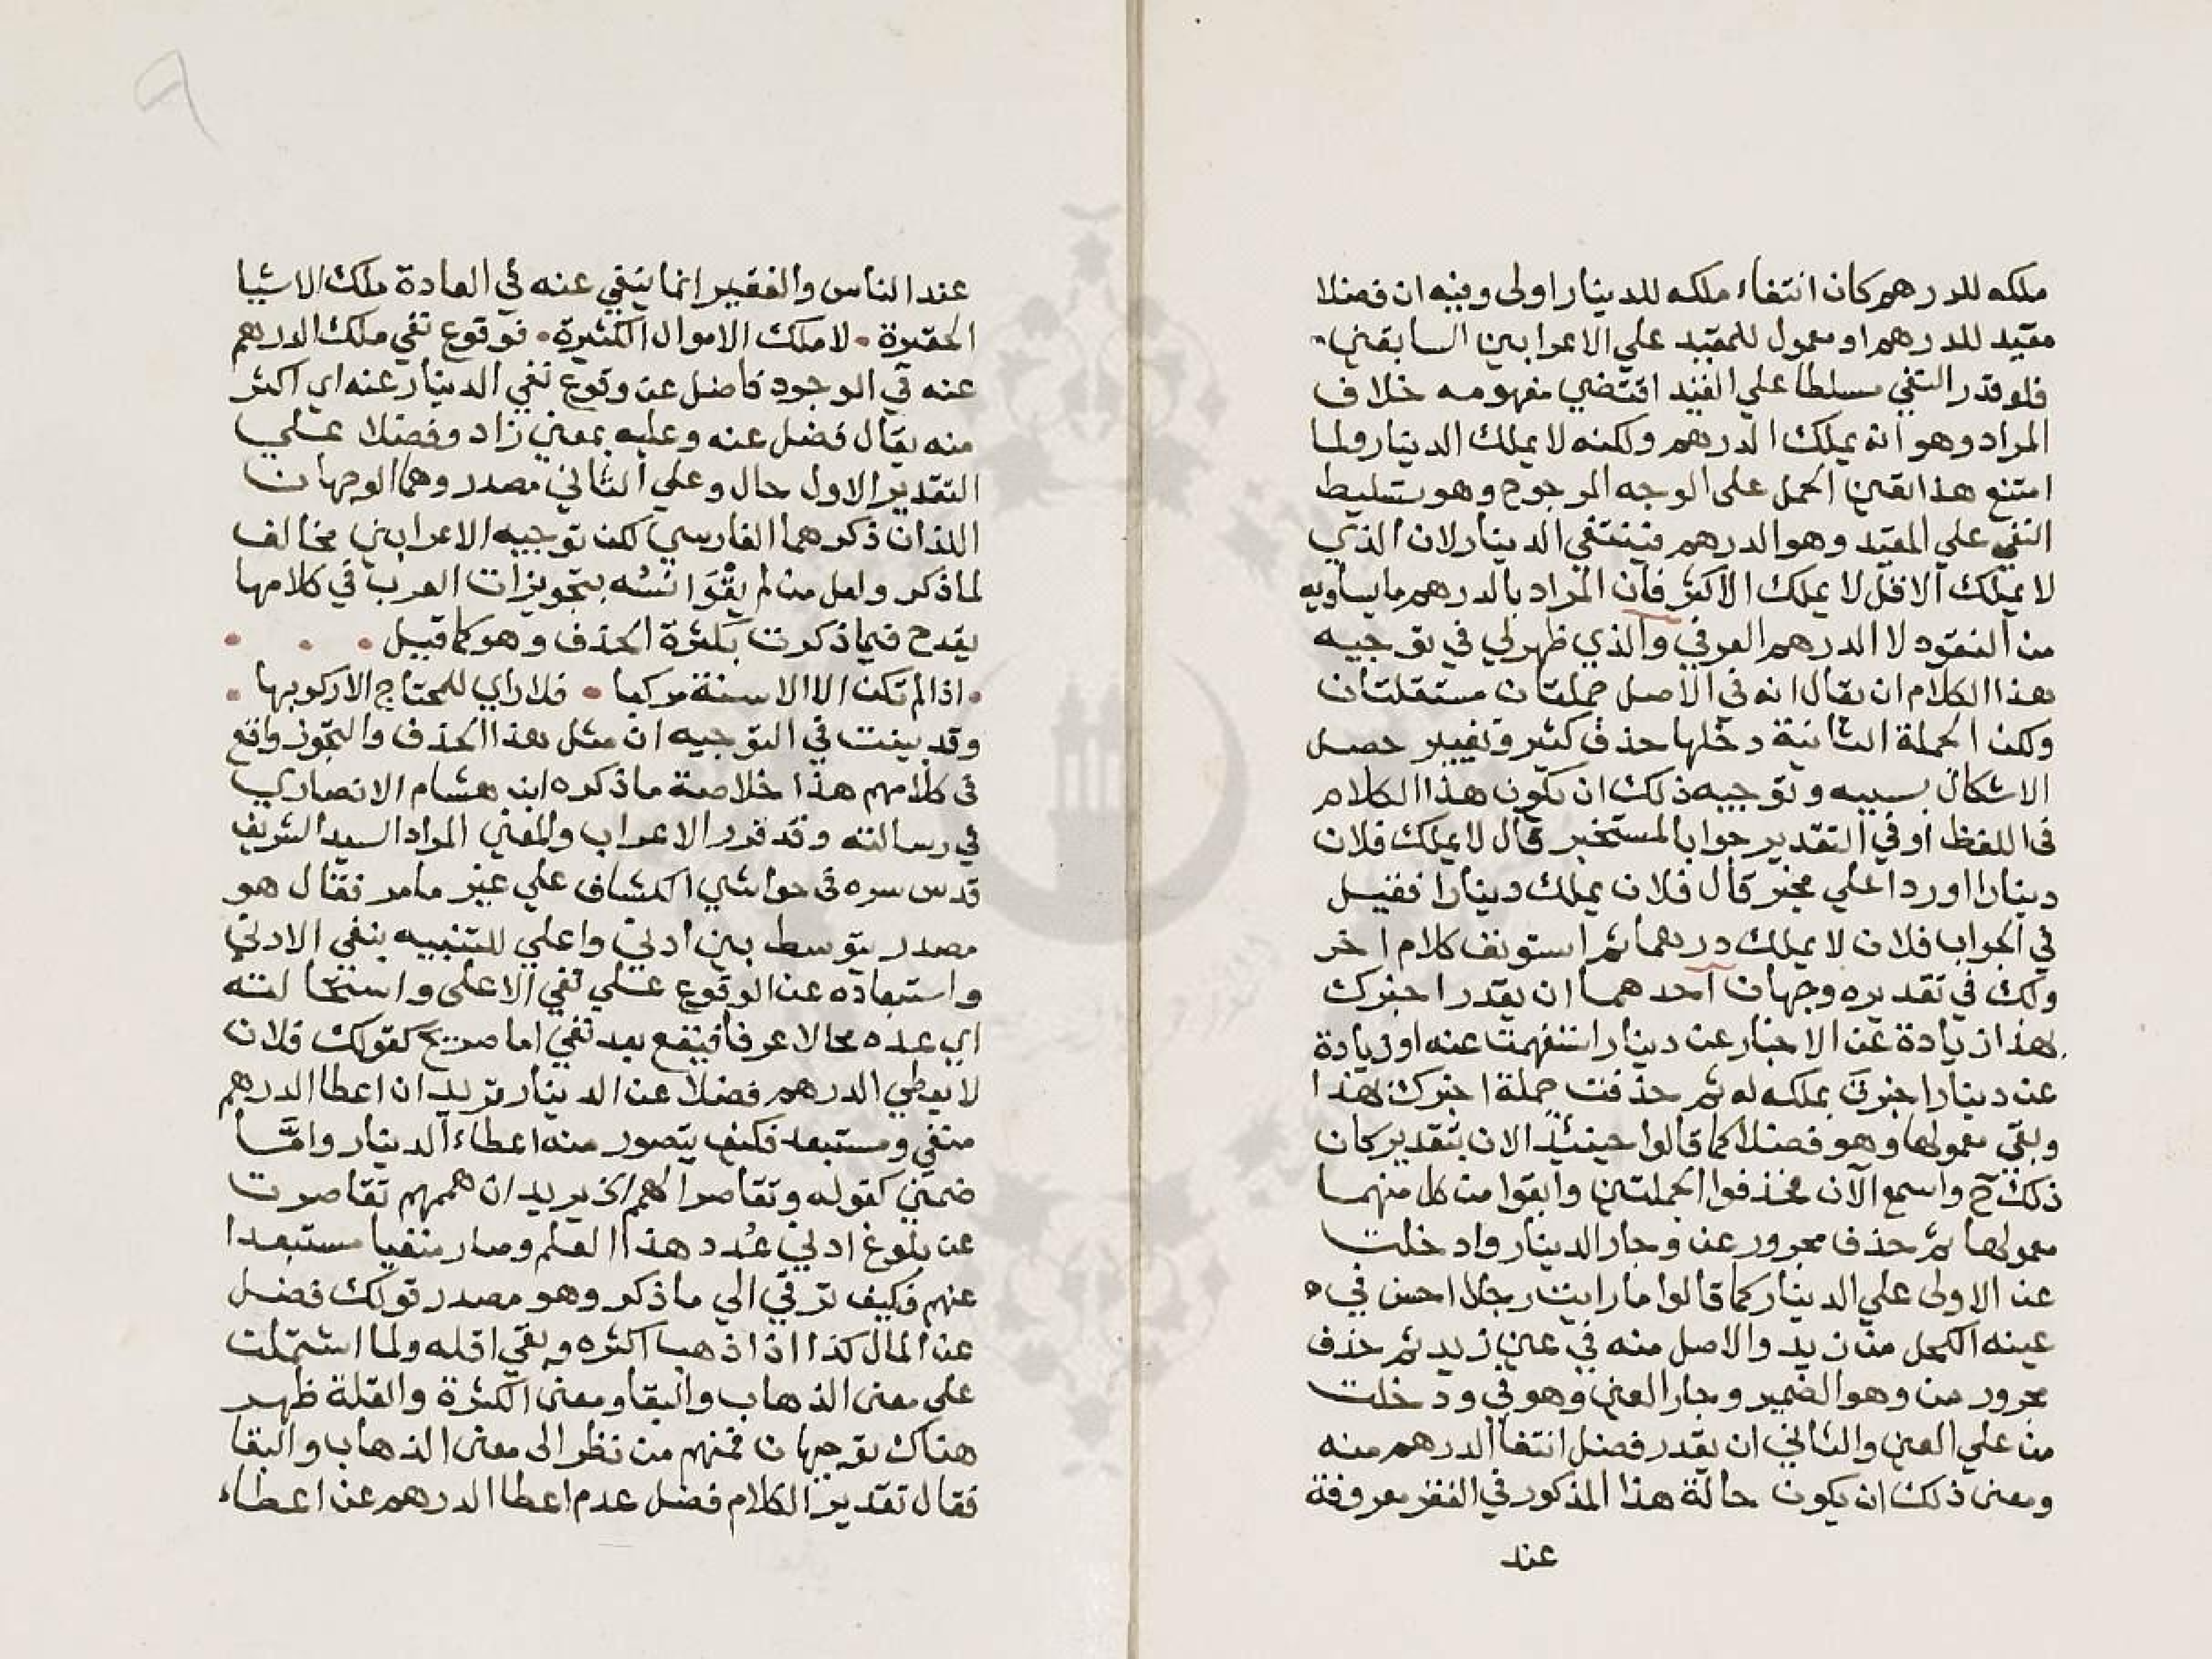 ملكه للدرهم كان انتفاء ملكه للدينار اولى وفيه ان فضلا
مقيد للدرهم او معمول للمقيد علي الاعرابين السابقين
فلو قدر النفي مسلطا علي القيد اقتضي مفهومه خلاف
المراد وهو انه يملك الدرهم ولكنه لا يملك الدينار ولما
امتنع هذا تعين الحمل على الوجه المرجوح وهو تسليط
النفي علي المقيد وهو الدرهم فينتفي الدينار لان الذي
لا يملك الاقل لا يملك الاكثر فان المراد بالدرهم ما يساويه
من النقود لا الدرهم العرفي والذي ظهر لي في توجيه
هذا الكلام ان يقال انه في الاصل جملتان مستقلتان
ولكن الجملة الثانية دخلها حذف كثير وتغيير حصل
الاشكال بسببه وتوجيه ذلك ان يكون هذا الكلام
في اللفظ او في التقدير جوابا لمستخبر قال لا يملك فلان
دينارا او ردا علي مخبر قال فلان يملك دينارا فقيل
في الجواب فلان لا يملك درهما ثم استونف كلام اخر
ولك في تقديره وجهان احدهما ان يقدر اخبرك
بهذا زيادة عن الاخبار عن دينار استفهمت عنه او زيادة
عن دينار اخبرت بملكه له ثم حذفت جملة اخبرك بهذا
وبقي معمولها وهو فضلا كما قالوا حينئذ الان بتقدير كان
ذلك ح واسمع الآن فحذفوا الجملتين وابقوا من كل منهما
معمولها ثم حذف مجرور عن وجار الدينار وادخلت
عن الاولى علي الدينار كما قالوا ما رايت رجلا احسن في
عينه الكحل من زيد والاصل منه في عين زيد ثم حذف
مجرور من وهو الضمير وجار العين وهو في ودخلت
من علي العين والثاني ان يقدر فضل انتفا الدرهم منه
ومعنى ذلك ان يكون حالة هذا المذكور في الفقر معروفة
عند
٩
عند الناس والفقير انما ينفي عنه في العادة ملك الاشيا
الحقيرة • لا ملك الاموال الكثيرة • فوقوع نفي ملك الدرهم
عنه في الوجود فاضل عن وقوع نفي الدينار عنه اي اكثر
منه يقال فضل عنه وعليه بمعني زاد وفضلا علي
التقدير الاول حال وعلي الثاني مصدر وهما الوجهان
اللذان ذكرهما الفارسي لكن توجيه الاعرابين مخالف
لما ذكر ولعل من لم يقْوَ انسُه بتجويزات العرب في كلامها
يقدح فيما ذكرت بكثرة الحذف وهو كما قيل • • •
• اذا لم تكن الا الاسنة مركبا • فلا راي للمحتاج الا ركوبها •
وقد بينت في التوجيه ان مثل هذا الحذف والتجوز واقع
في كلامهم هذا خلاصة ما ذكره ابن هشام الانصاري
في رسالته وقد قرر الاعراب والمعني المراد السيد الشريف
قدس سره في حواشي الكشاف علي غير ما مر فقال هو
مصدر يتوسط بين ادني واعلي للتنبيه بنفي الادني
واستبعاده عن الوقوع علي نفي الاعلى واستحالته
اي عده محالا عرفا فيقع بعد نفي اما صريح كقولك فلان
لا يعطي الدرهم فضلا عن الدينار تريد ان اعطا الدرهم
منفي ومستبعد فكيف يتصور منه اعطاء الدينار وامَّا
ضمني كقوله وتقاصر الهمم الخ يريد ان هممهم تقاصرت
عن بلوغ ادني عدد هذا العلم وصار منفيا مستبعدا
عنهم فكيف ترقي الي ما ذكر وهو مصدر قولك فضل
عن المال كذا اذا ذهب اكثره وبقي اقله ولما اشتملت
علي معنى الذهاب والبقا ومعنى الكثرة والقلة ظهر
هناك توجيهان فمنهم من نظر الى معنى الذهاب والبقا
فقال تقدير الكلام فضل عدم اعطا الدرهم عن اعطاء